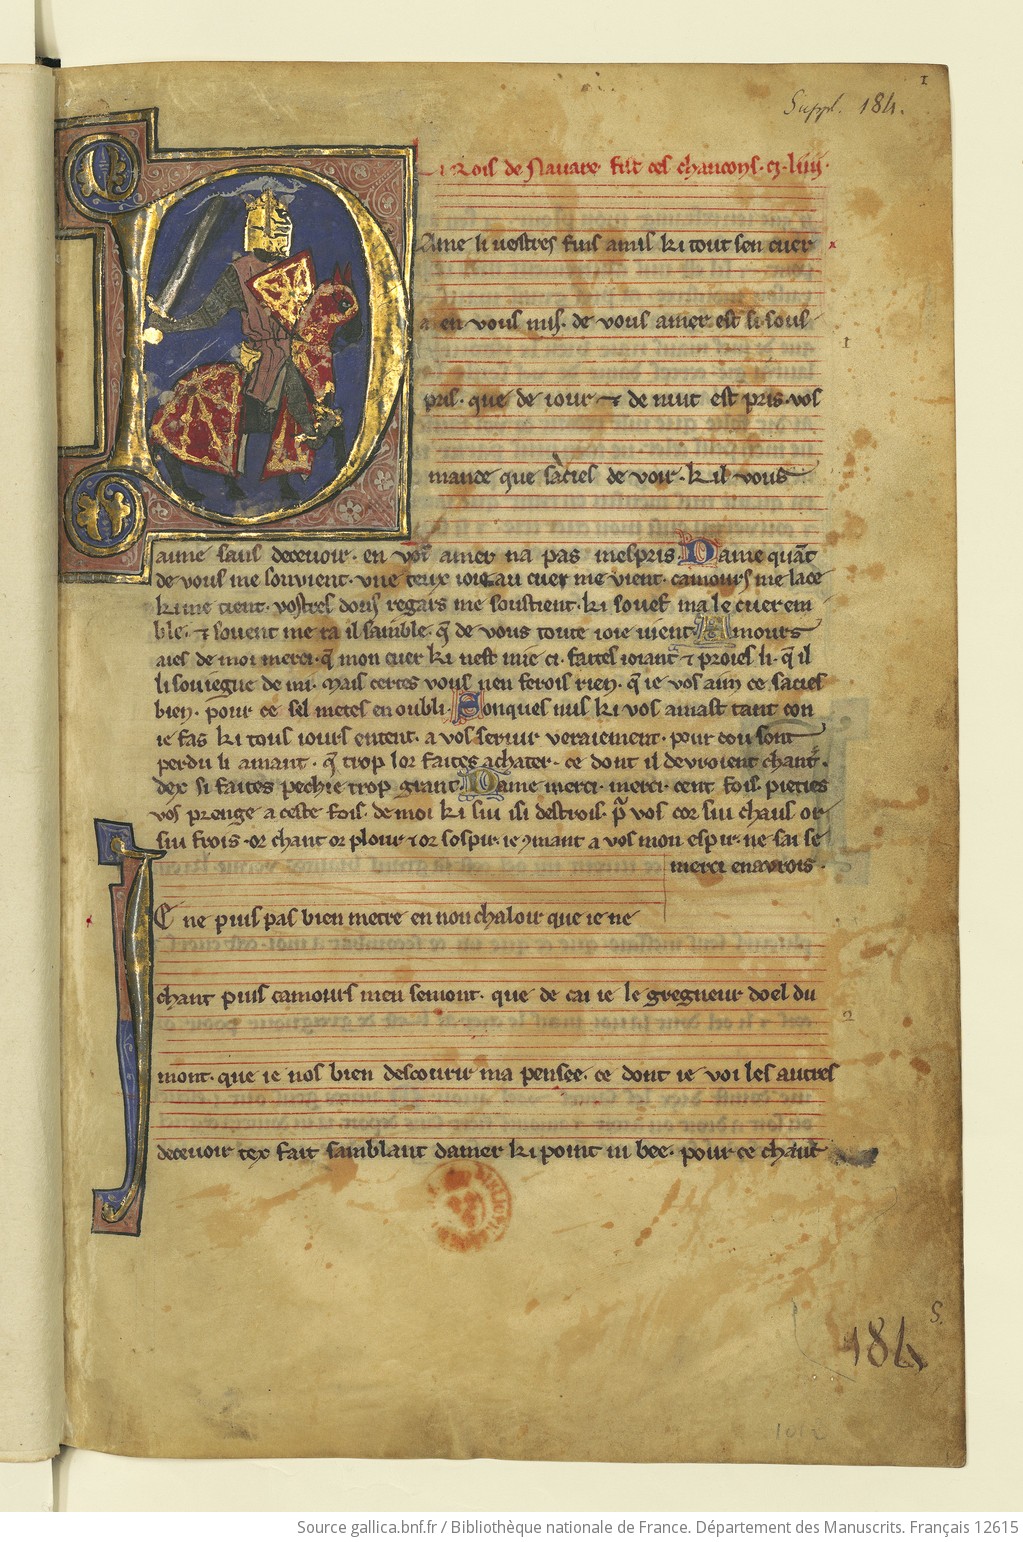 1
Suppl. 184.
Li Rois de Nauare fist ces chancons. ci. liiij.
Dame li uestres fins amis ki tout sen cuer
a en vous mis. de vous amer est si sous
pris. que de iour ⁊ de nuit est pris. vos
mande que saciés de voir. kil vous
aime sans deceuoir. en vos amer na pas mespris. Dame quāt
de vous me souuient. vne teux ioie au cuer me vient. camours me lace
ki me tient. vostres dous regars me soustient. ki souef ma le cuer em
ble. ⁊ souent me ra il samble. q̄ de vous toute ioie uient. Amours
aies de moi merci. q̄ mon cuer ki nest mie ci. faites ioiant ⁊ proies li. q̄ il
li souiegne de mi. Mais certes vous nen ferois rien. q̄ ie vos aim ce saciés
bien. pour ce sel metes en oubli. Sonques nus ki vos amast tant con
ie fas ki tous iours entent. a vos seruir veraiement. pour cou sont
perdu li amant. q̄ trop lor faites achater. ce dont il devroient chant̄.
dex si faites pechie trop grant. Dame merci. merci. cent fois. pieties
vos prenge a ceste fois. de moi ki sui isi destrois. p̄ vos cor sui chaus or
sui frois. or chant or plour ⁊ or sospir. ie 9mant a vos mon espir. ne sai se
merci en avrois.
Ie ne puis pas bien metre en non chaloir que ie ne
chant puis camours men semont. que de cai ie le gregneur doel du
mont. que ie nos bien descourir ma pensee. ce dont ie voi les autres
deceuoir tex fait samblant damer ki point ni bee. pour ce chant
1
2
S.
184
1012
Source gallica.bnf.fr / Bibliothèque nationale de France. Département des Manuscrits. Français 12615